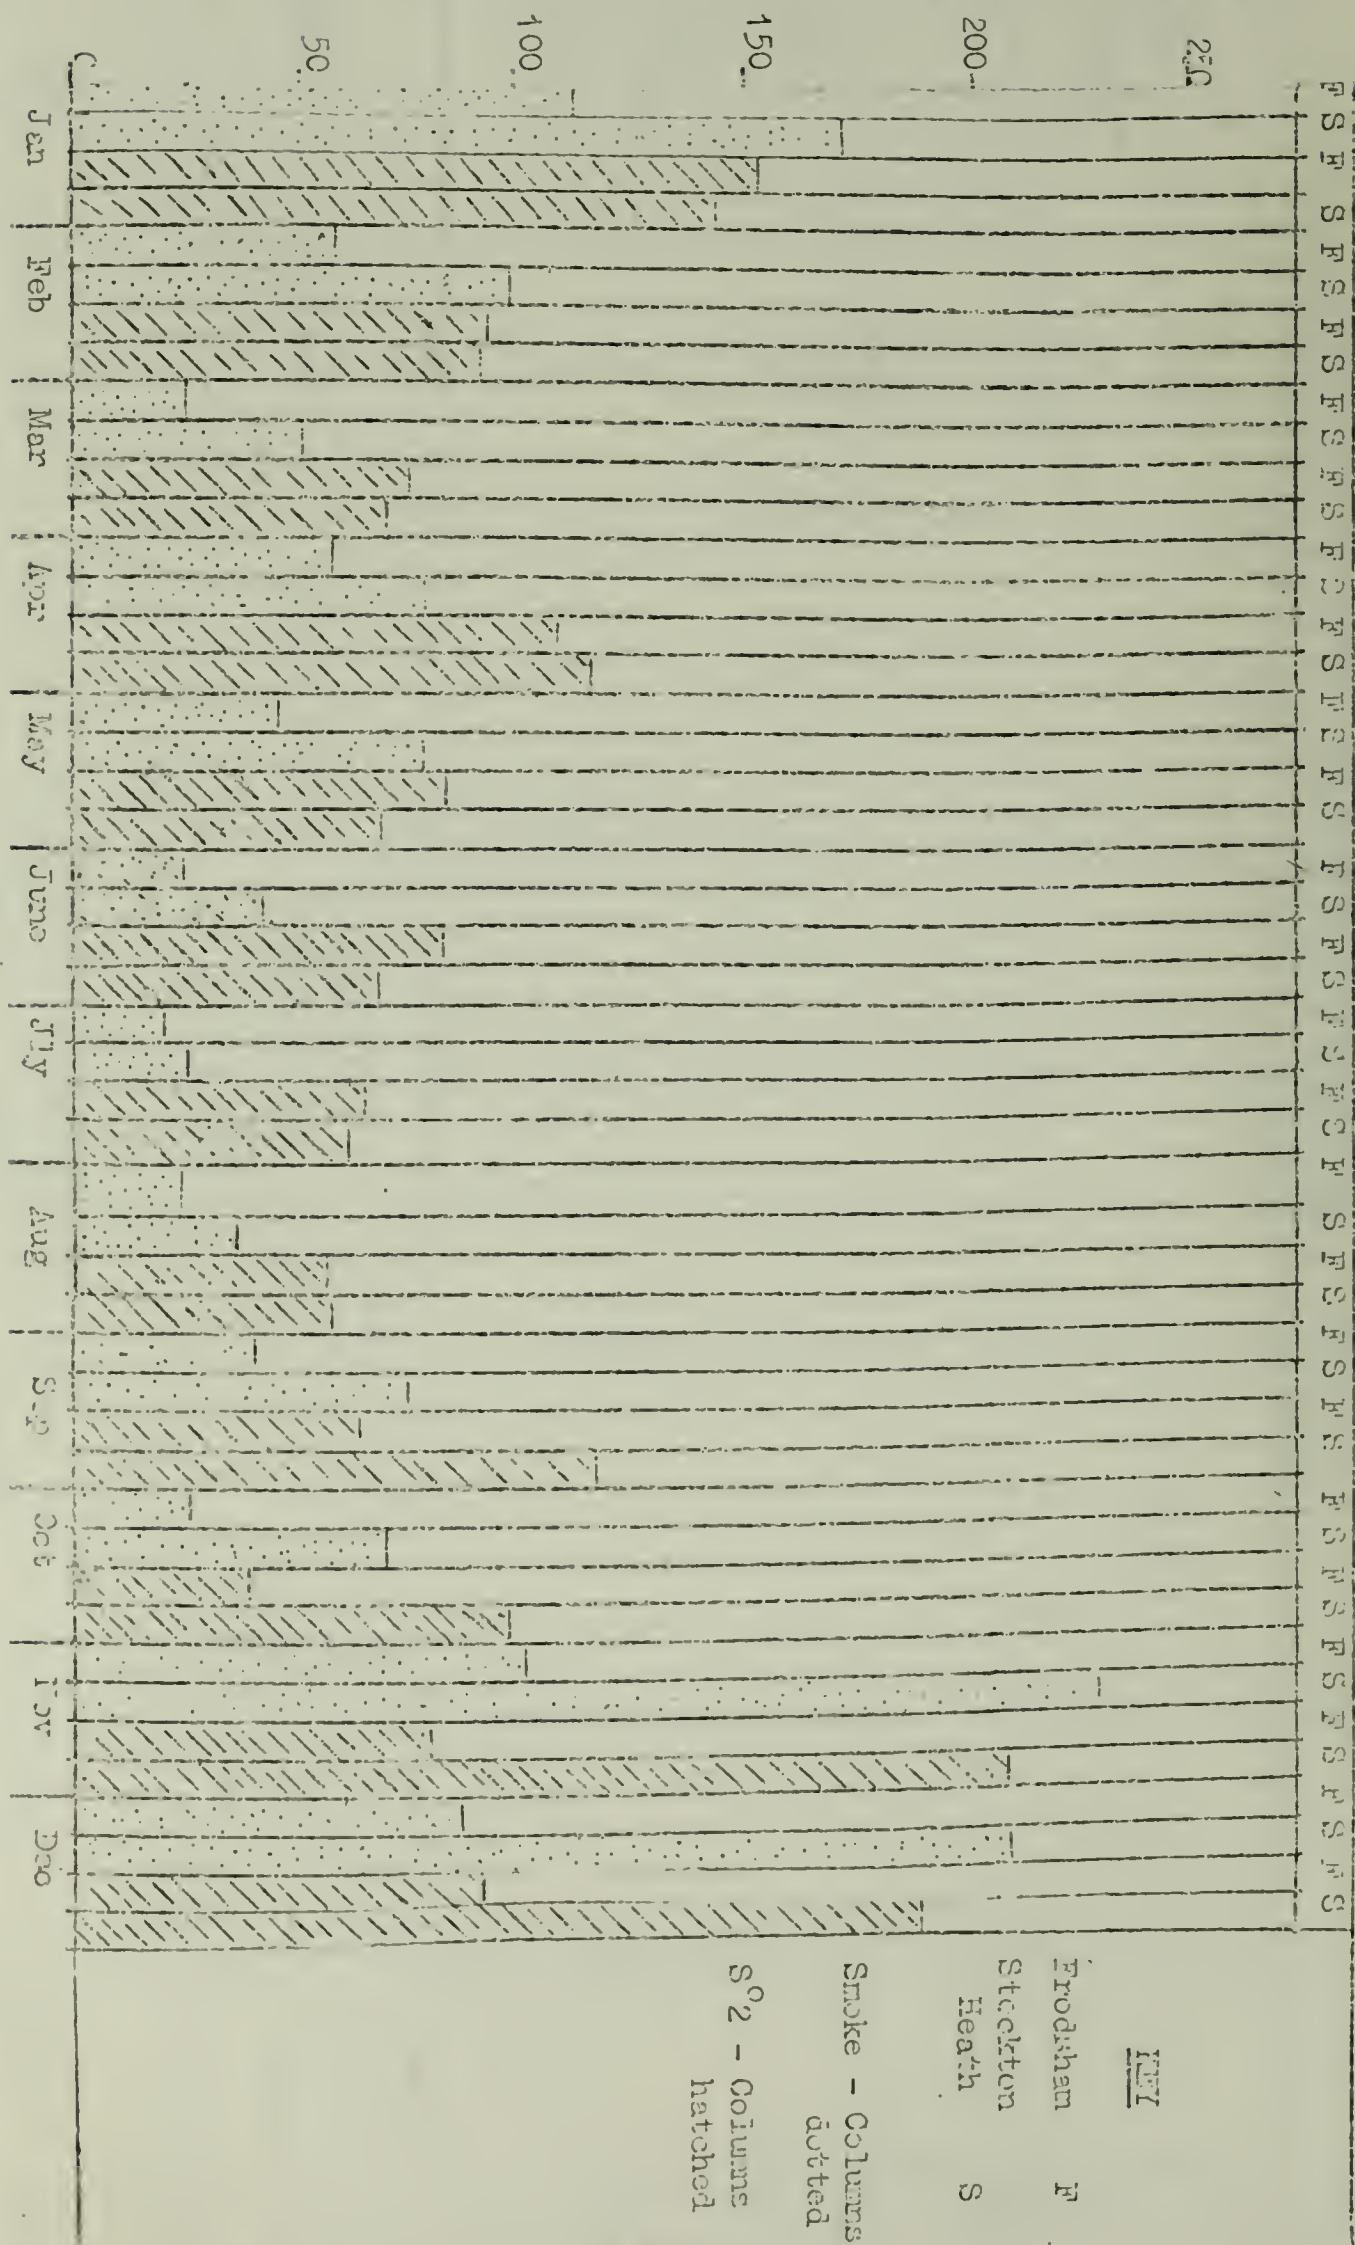 250
200
150
100
50
0
F S F S F S F S F S F S F S F S F S F S F S F S F S F S F S F S F S F S F S F S F S F S F S F S
Jan Feb Mar Apr May June July Aug Sep Oct Nov Dec
KEY
Frodsham F
Stockton
Heath S
Smoke - Columns
dotted
SO2 - Columns
hatched